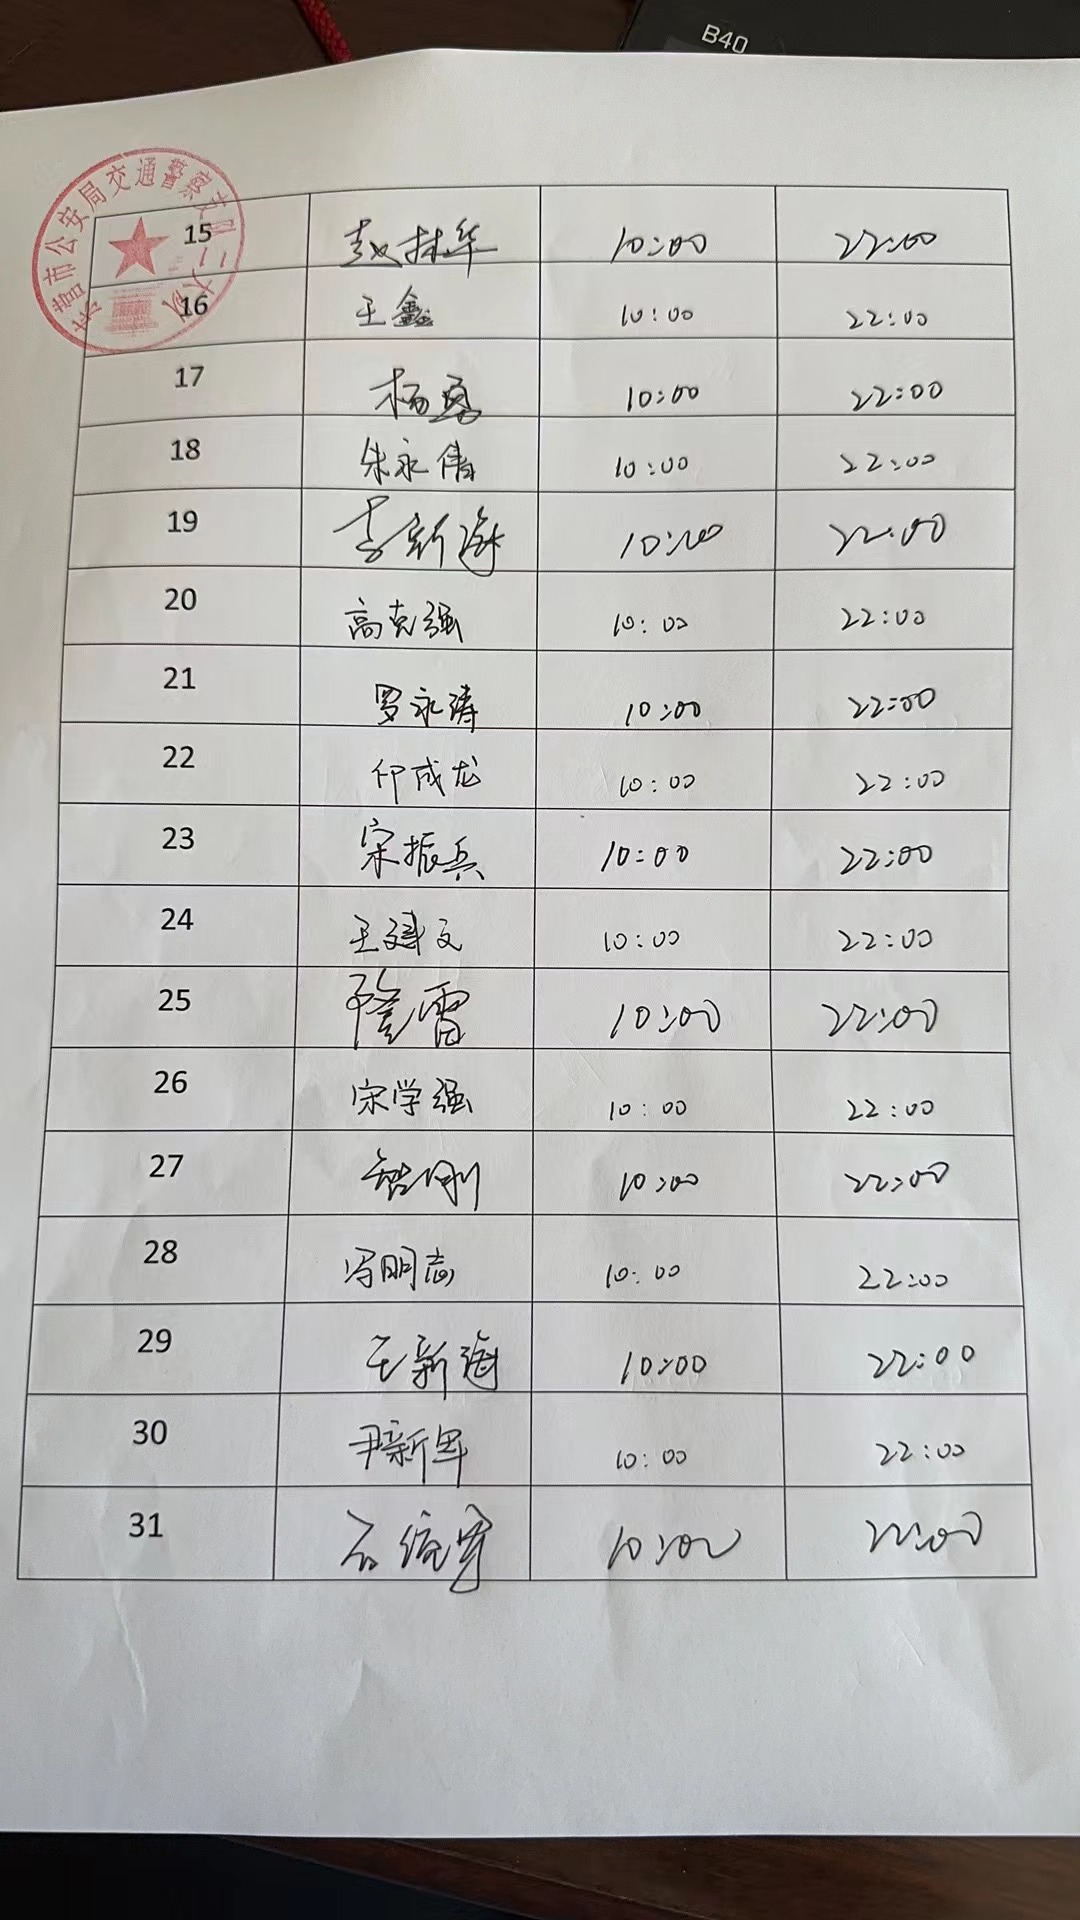 B40
东营市公安局交通警察支队二大队
15 赵林华 10:00 22:00
16 王鑫 10:00 22:00
17 杨勇 10:00 22:00
18 朱永倩 10:00 22:00
19 李新海 10:00 22:00
20 高克强 10:00 22:00
21 罗永涛 10:00 22:00
22 成龙 10:00 22:00
23 宋振兵 10:00 22:00
24 王建文 10:00 22:00
25 隆雷 10:00 22:00
26 宋学强 10:00 22:00
27 刚 10:00 22:00
28 冯明志 10:00 22:00
29 王新海 10:00 22:00
30 尹新军 10:00 22:00
31 石 军 10:00 22:00